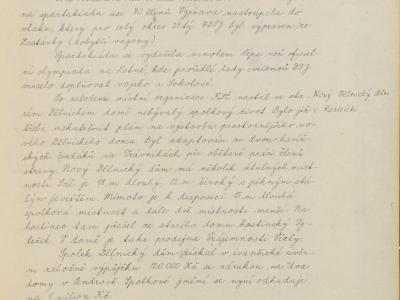 na spartakiádu asi 40 členů. Výprava nastoupila do
vlaku, který pro celý okres 13tý DTJ byl vypraven ze
Zastávky (dobytčí vagony).
Spartakiáda se vydařila mnohem lépe než oficiel
ní olympiada na Letné, kde prořídlé řady cvičenců DTJ
muselo doplňovat vojsko a Sokolové.
Po založení místní organisace KSČ nastal ve sta
rém Dělnickém domě nebývalý spolkový život. Bylo již
třeba uskutečnit plán na výstavbu prostornějšího no-
vého Dělnického domu. Byl adaptován ze dvou havíř-
ských činžáků na Trávnikách při obětavé práci členů
strany. Nový Dělnický dům má několik útulných míst-
ností. Sál je 18 m dlouhý, 12 m široký s pěkným stá-
lým jevištěm. Mimoto je k disposici 15 m dlouhá
spolková místnost a dále dvě místnosti menší. Na
hostinec tam přešel ze starého domu hostinský
V domě je také prodejna Vzájemnosti Včely.
Spolek Dělnický dům získal v ivančické úvěr
ně záložně výpůjčku 120.000 Kč se zárukou na dva
domy v Spolkové jmění se nyní odhaduje
na 1 milion Kč.
Nový Dělnický dům
v Rosicích